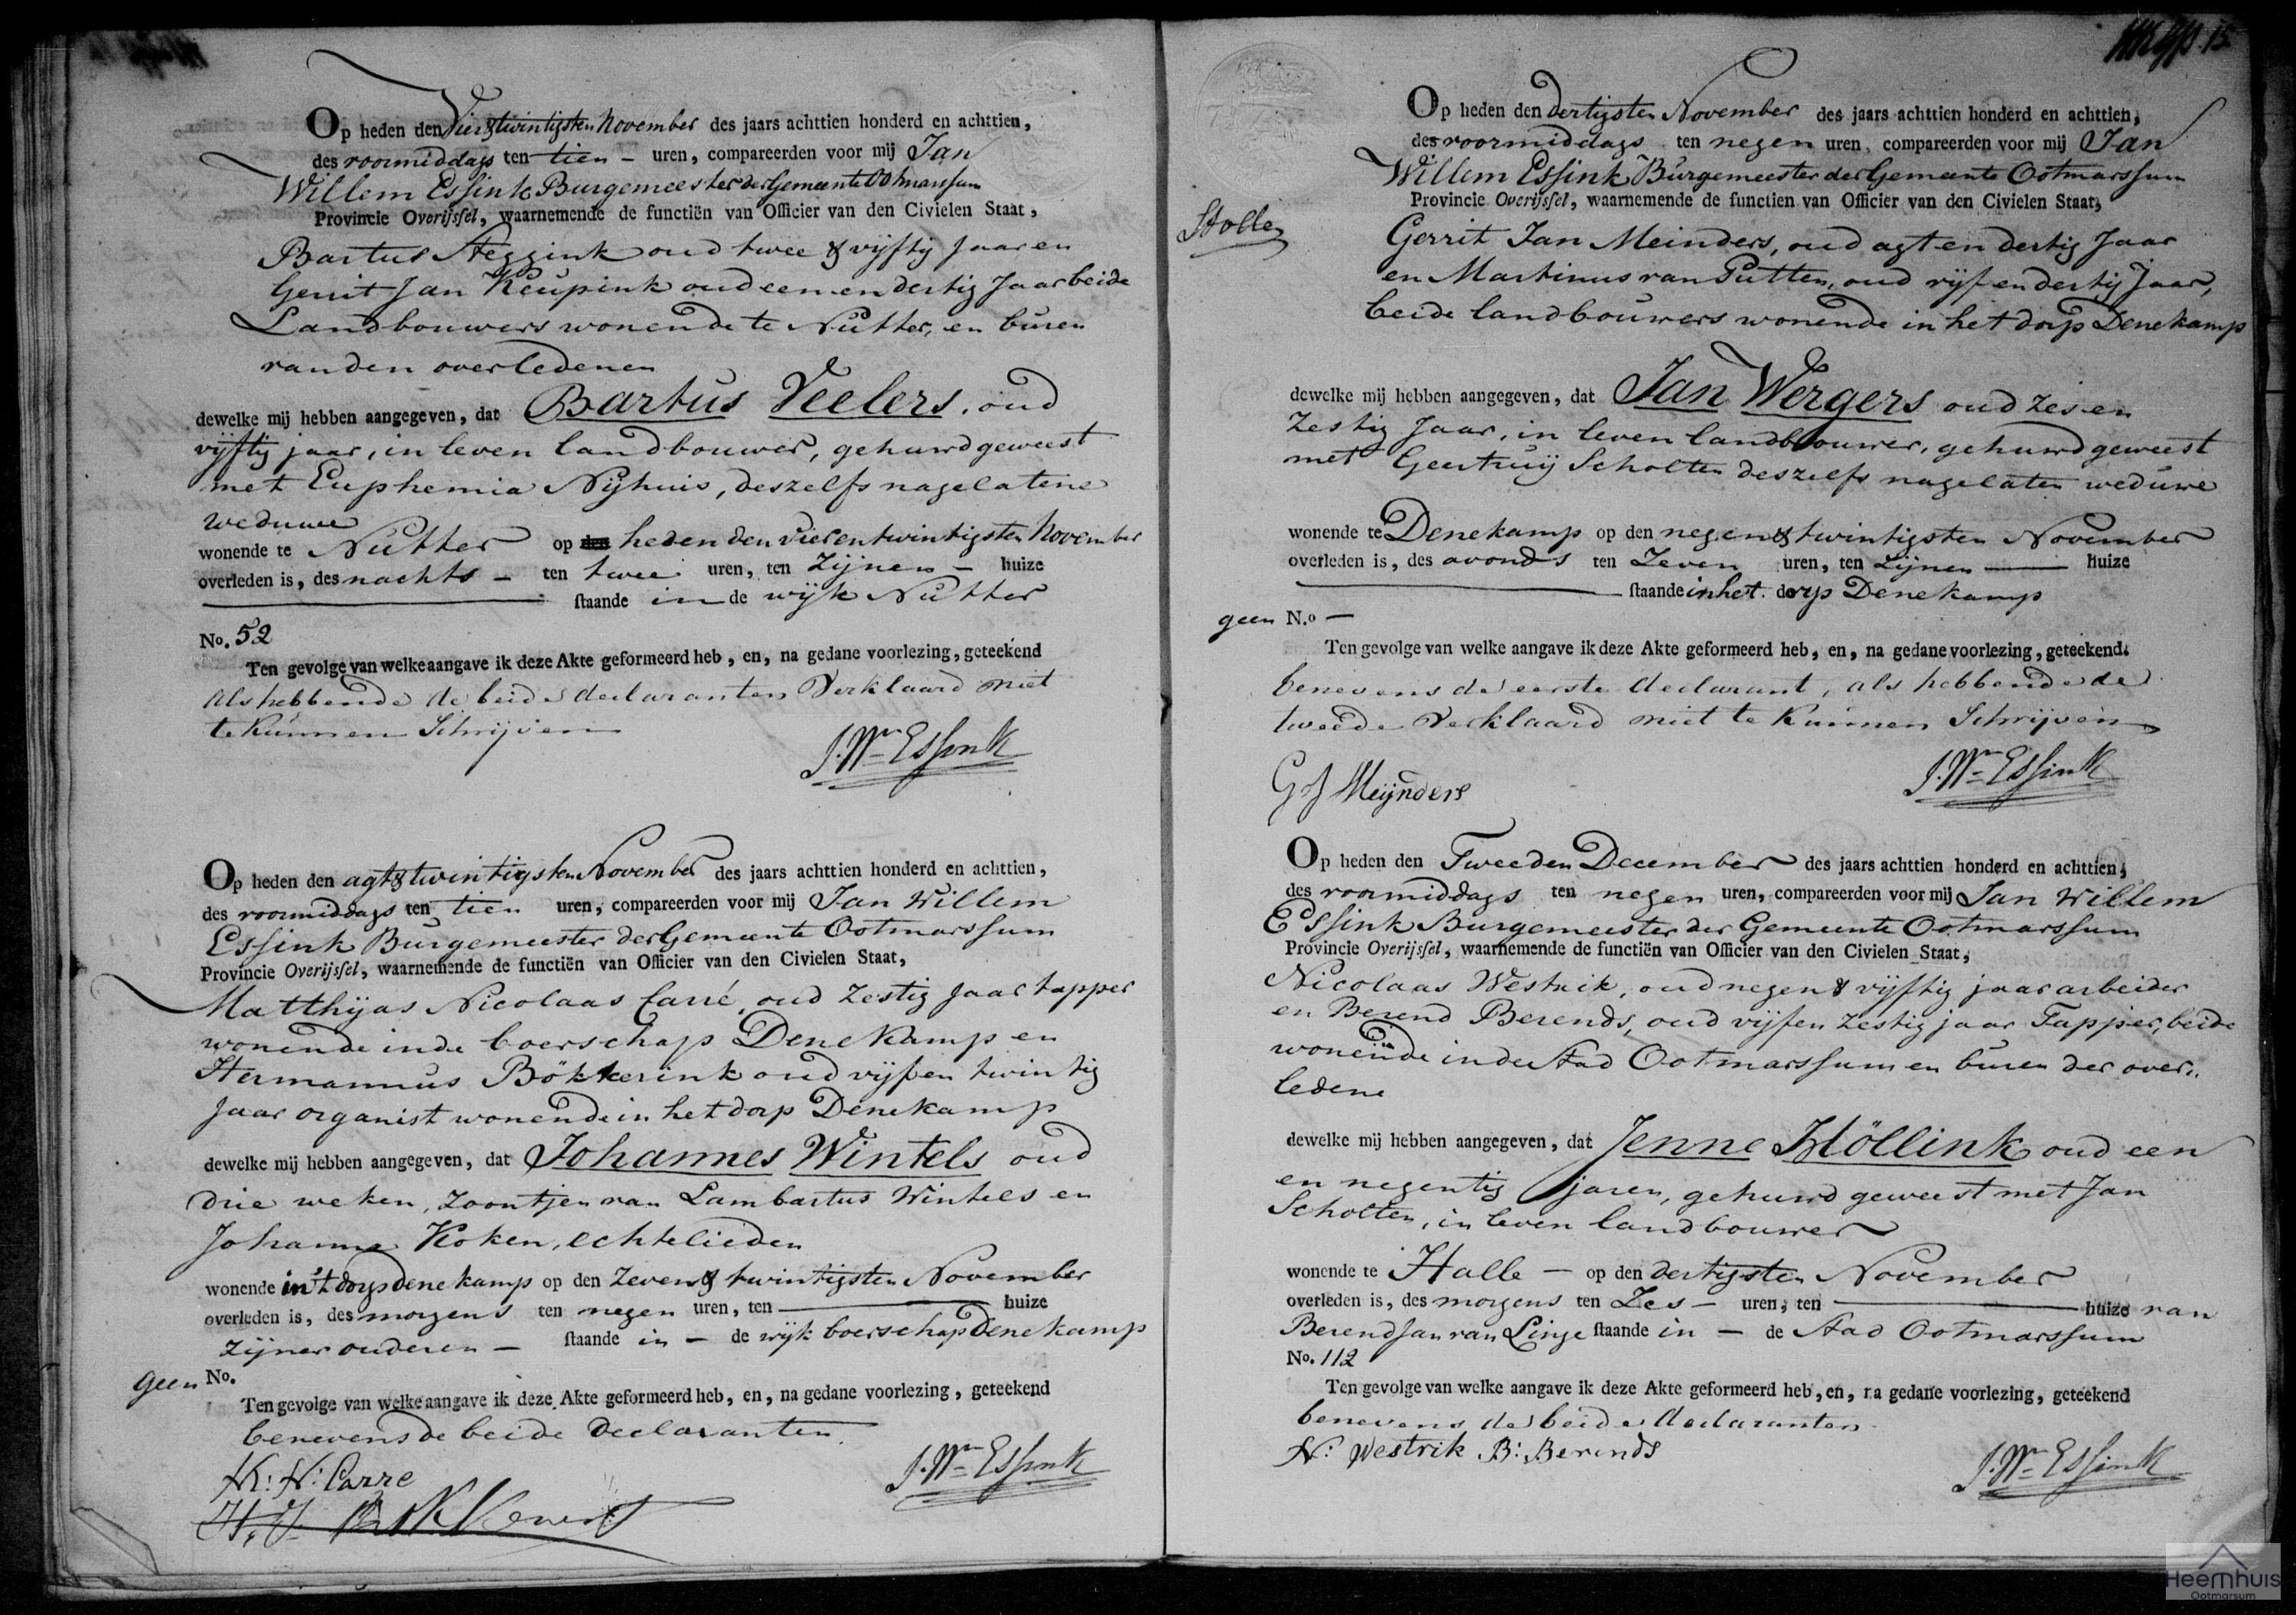 Op heden den Vier & twintigsten November des jaars achttien honderd en achttien,
des voormiddags ten tien - uren, compareerden voor mij Jan
Willem Essink Burgemeester der Gemeente Ootmarssum
Provincie Overijssel, waarnemende de functiën van Officier van den Civielen Staat,
Bartus Steggink oud twee & vyftig Jaar en
Gerrit Jan Keupink oud een en dertig Jaar beide
Landbouwers wonende te Nutter, en buren
van den overledenen
dewelke mij hebben aangegeven, dat Bartus Veelers, oud
vyftig jaar, in leven landbouwer, gehuwd geweest
met Euphemia Nyhuis, deszelfs nagelatene
weduwe
wonende te Nutter op den heden den vier en twintigsten November
overleden is, des nachts - ten twee uren, ten Zijnen - huize
staande in de wyk Nutter
No. 52
Ten gevolge van welke aangave ik deze Akte geformeerd heb, en, na gedane voorlezing, geteekend
als hebbende de beide declaranten Verklaard niet
te kunnen Schrijven
J. Wm Essink
Op heden den agt & twintigsten November des jaars achttien honderd en achttien,
des voormiddags ten tien uren, compareerden voor mij Jan Willem
Essink Burgemeester der Gemeente Ootmarssum
Provincie Overijssel, waarnemende de functiën van Officier van den Civielen Staat,
Matthijas Nicolaas Carré, oud Zestig Jaar tapper
wonende in de boerschap Denekamp en
Hermannus Bökkerink oud vijf en twintig
Jaar organist wonende in het dorp Denekamp
dewelke mij hebben aangegeven, dat Johannes Wintels oud
drie weken, zoontjen van Lambartus Wintels en
Johanna Koken, echtelieden
wonende in 't dorp denekamp op den Zeven & twintigsten November
overleden is, des morgens ten negen uren, ten huize
Zijner ouderen - staande in - de wyk boerschap Denekamp
geen No.
Ten gevolge van welke aangave ik deze Akte geformeerd heb, en, na gedane voorlezing, geteekend
benevens de beide declaranten.
N: Carre
J. Wm Essink
15
Op heden den dertigsten November des jaars achttien honderd en achttien,
des voormiddags ten negen uren, compareerden voor mij Jan
Willem Essink Burgemeester der Gemeente Ootmarssum
Provincie Overijssel, waarnemende de functien van Officier van den Civielen Staat,
Gerrit Jan Meinders, oud agt en dertig Jaar
en Martinus van Putten, oud vijf en dertig Jaar,
beide landbouwers wonende in het dorp Denekamp
dewelke mij hebben aangegeven, dat Jan Wergers oud zes en
Zestig Jaar, in leven landbouwer, gehuwd geweest
met Geertruij Scholten deszelfs nagelaten weduwe
wonende te Denekamp op den negen & twintigsten November
overleden is, des avonds ten Zeven uren, ten Zijnen huize
staande in het dorp Denekamp
geen N.o -
Ten gevolge van welke aangave ik deze Akte geformeerd heb, en, na gedane voorlezing, geteekend.
benevens de eerste declarant, als hebbende de
tweede Verklaard niet te kunnen Schrijven
J. Wm Essink
G J Meijnders
Op heden den Tweeden December des jaars achttien honderd en achttien,
des voormiddags ten negen uren, compareerden voor mij Jan Willem
Essink Burgemeester der Gemeente Ootmarssum
Provincie Overijssel, waarnemende de functiën van Officier van den Civielen Staat,
Nicolaas Westrik, oud negen & vijftig jaar arbeider
en Berend Berends, oud vijf en Zestig jaar Tapper, beide
wonende in de Stad Ootmarssum en buren der over„
ledene
dewelke mij hebben aangegeven, dat Jenne Höllink oud een
en negentig jaren, gehuwd geweest met Jan
Scholten, in leven landbouwer
wonende te Halle - op den dertigsten November
overleden is, des morgens ten Zes - uren, ten huize van
Berend Jan van Linge staande in - de Stad Ootmarssum
No. 112
Ten gevolge van welke aangave ik deze Akte geformeerd heb, en, na gedane voorlezing, geteekend
benevens de beide declaranten
N: Westrik B: Berends
J. Wm Essink
Heemhuis
Ootmarsum